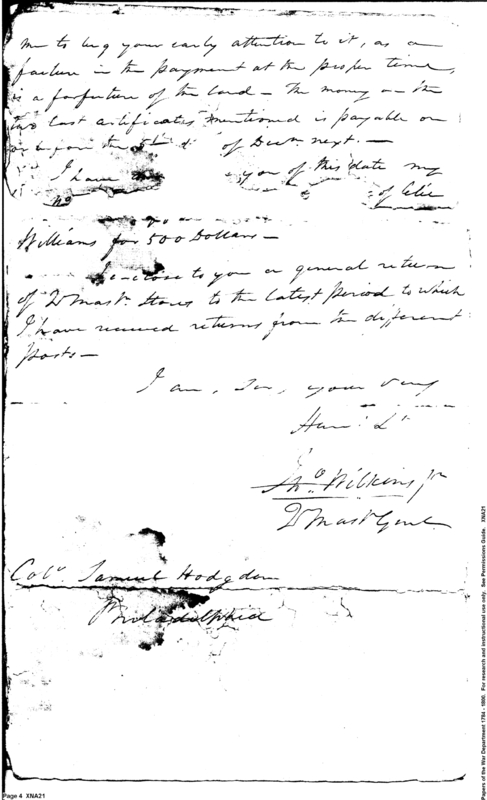 me to beg your early attention to it, as a
failure in the payment at the proper time,
is a forfeiture of the land — The money on the
two last certificates mentioned is payable on
or before the 5th of Decr. next. —
I have you of this date my
No of Elie
Williams for 500 Dollars —
Inclose to you a general return
of Qr Mastr. Stores to the latest period to which
I have received returns from the different
posts —
I am, Sir, your Very
Hum. St
Jno. Wilkins Jr
Qr Mastr Genl.
Colo. Samuel Hodgdon
Philadelphia
Page 4 XNA21
Papers of the War Department 1784 - 1800. For research and instructional use only. See Permissions Guide. XNA21